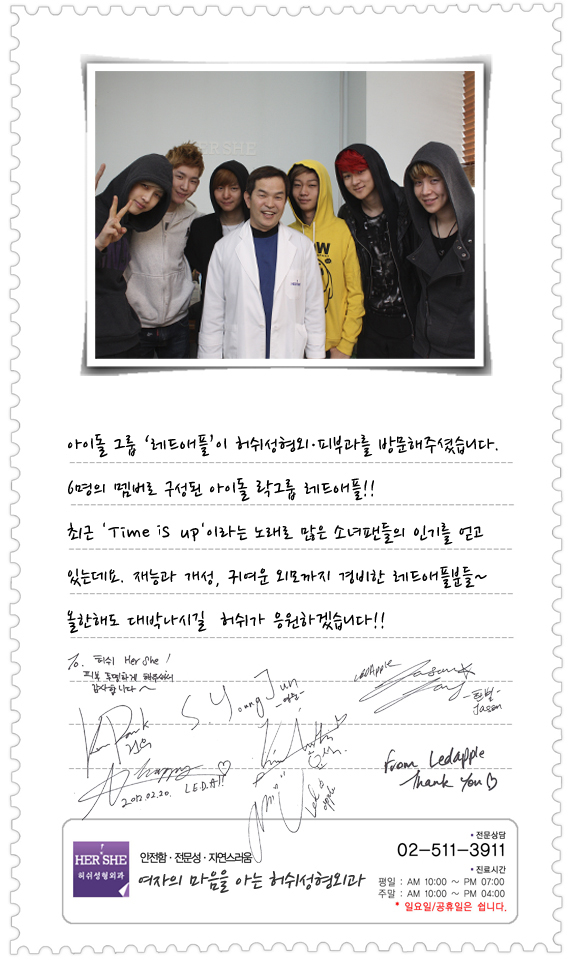 HERSHE
HERSHE
아이돌 그룹 '레드애플'이 허쉬성형외·피부과를 방문해주셨습니다.
6명의 멤버로 구성된 아이돌 락그룹 레드애플!!
최근 'Time is up'이라는 노래로 많은 소녀팬들의 인기를 얻고
있는데요. 재능과 개성, 귀여운 외모까지 겸비한 레드애플분들~
올한해도 대박나시길 허쉬가 응원하겠습니다!!
To. 허쉬 Her she!
피부 투명하게 해주셔서
감사합니다~
LEDApple
YoungJun
-영준-
-한별-
Jason
건우
happy
2012.02.20. L.E.D.A!!
Led apple
From Ledapple
Thank You♡
HER SHE
허쉬성형외과
안전함 · 전문성 · 자연스러움
여자의 마음을 아는 허쉬성형외과
전문상담
02-511-3911
진료시간
평일 : AM 10:00 ~ PM 07:00
주말 : AM 10:00 ~ PM 04:00
* 일요일/공휴일은 쉽니다.